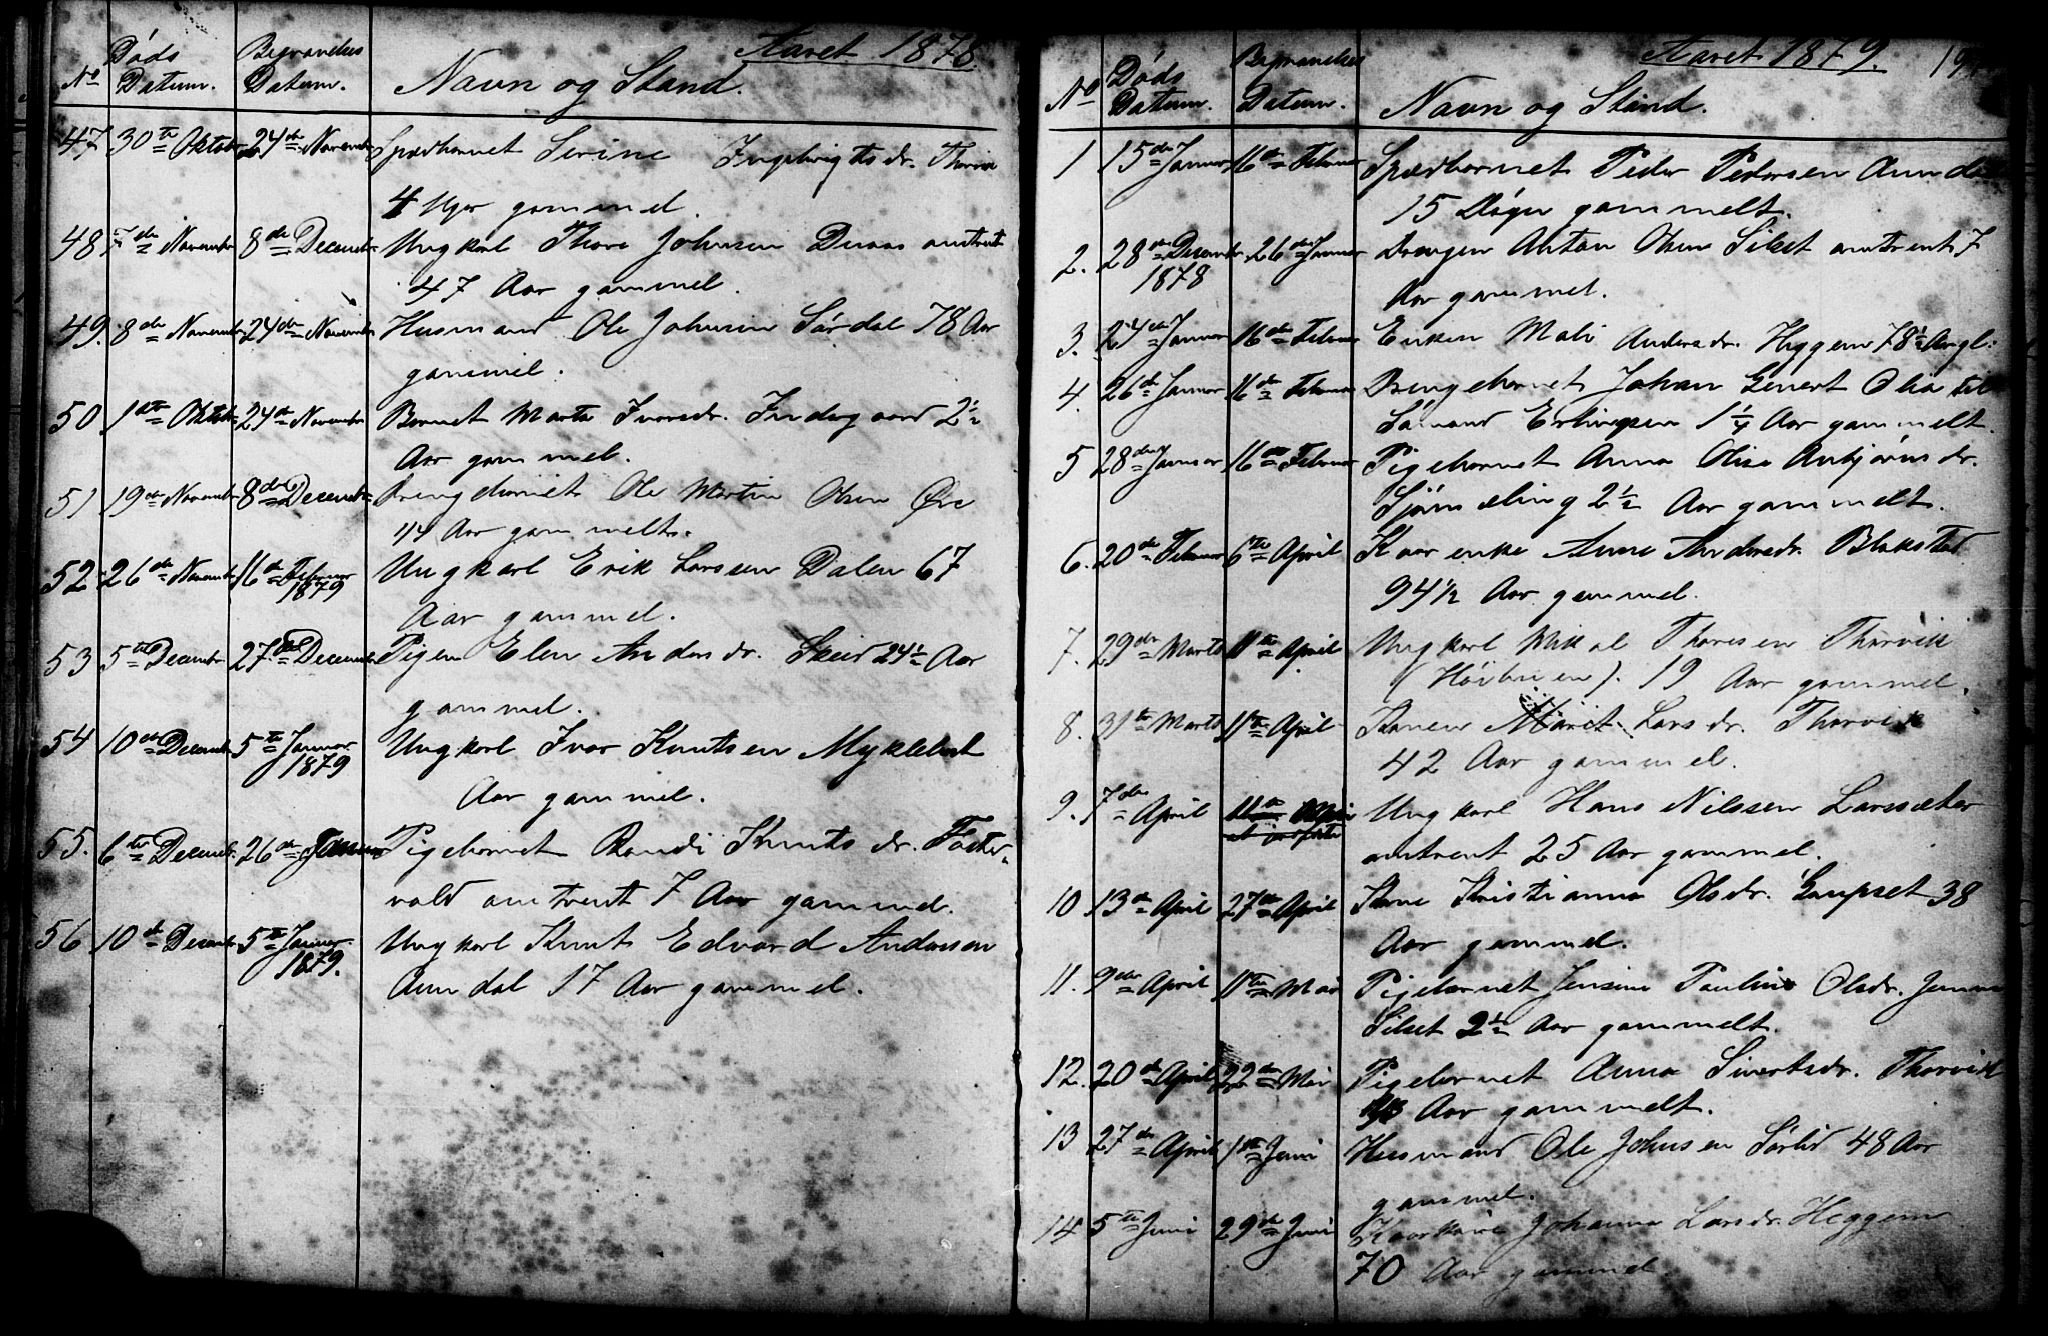 Aaret 1878
No Døds Datum. Begravelses Datum. Navn og Stand.
47 30te Oktobr 24de Novembr Spædbarnet Serine Ingebrigtsdr. Thorvik
4 Uger gammel.
48 7de Novembr 8de Decembr Ungkarl Thore Johnsen omtrent
47 Aar gammel.
49. 8de Novembr 24de Novembr Husmand Ole Johnsen Sørdal 78 Aar
gammel.
50 1ste Oktobr 24de Novembr Barnet Marta Ivarsdr. Indergaard 2½
Aar gammel.
51 19de Novembr 8de Decembr Drengebarnet Ole Martin Olsen Øre
1/4 Aar gammelt.
52 26de Novembr 16de Februar 1879 Ungkarl Erik Larssen Dalen 67
Aar gammel.
53 5te Decembr 27de Decembr Pigen Elen Andersdr. Skeid 24½ Aar
gammel.
54 10de Decembr 5te Januar 1879 Ungkarl Ivar Knutsen Myklebust
Aar gammel.
55. 6te Decembr. 26de Januar Pigebarnet Randi Knutsdr. Foster-
vold omtrent 7 Aar gammel.
56 10de Decembr 5te Januar 1879. Ungkarl Knut Edvard Andersen
Aundal 17 Aar gammel.
Aaret 1879.
No Døds Datum. Begravelses Datum. Navn og Stand.
1 15de Januar 16de Februar Spædbarnet Peder Pedersen Aundal
15 Døgn gammelt.
2. 28de Decembr. 1878 26de Januar Drengen Anton Olsen Silset omtrent 7
Aar gammel.
3. 24de Januar 16de Februar Enken Mali Andersdr. Heggem 78½ Aar gl.
4. 26de Januar 16de Februar Drengebarnet Johan Gerert Olia til
Sømand Erlingsen 1¼ Aar gammelt.
5 28de Januar 16de Februar Pigebarnet Anna Olise Anbjørnsdr.
2½ Aar gammelt.
6. 20de Februar 6te April Kaarenke Anne Andersdr. Blakstad
94½ Aar gammel.
7. 29de Marts 11te April Ungkarl Mikal Thoresen Thorvik
19 Aar gammel.
8. 31te Marts 11te April Konen Marit Larsdr. Thorvik
42 Aar gammel.
9. 7de April 11te April Ungkarl Hans Nilssen Larssæter
omtrent 25 Aar gammel.
10 13de April 27de April Kone Kristianna Olsdr. Gaupset 38
Aar gammel.
11. 9de April 11te Mai Pigebarnet Jensine Pauline Olsdr.
Silset 2½ Aar gammelt.
12. 20de April 22de Mai Pigebarnet Anna Sivertsdr. Thorvik
Aar gammelt.
13 27de April 1ste Juni Husmand Ole Johnsen Sørlid 48 Aar
gammel.
14 5te Juni 29de Juni Johanna Larsdr. Heggem
70 Aar gammel.